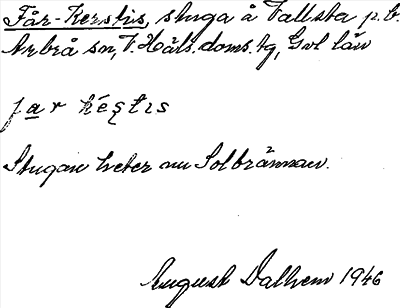 Får-Kerstis, stuga å Vallsta p.b.
Arbrå sn, V. Häls. doms. tg, Gvl län
far késtıs
Stugan heter nu Solbrännan.
August Dalhem 1946